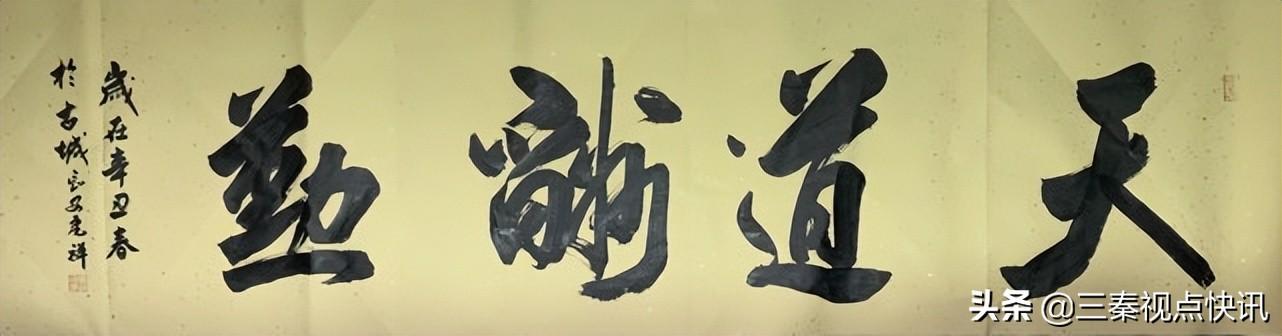 天道酬勤
歲在辛丑春
於古城长安祥
头条 @三秦视点快讯